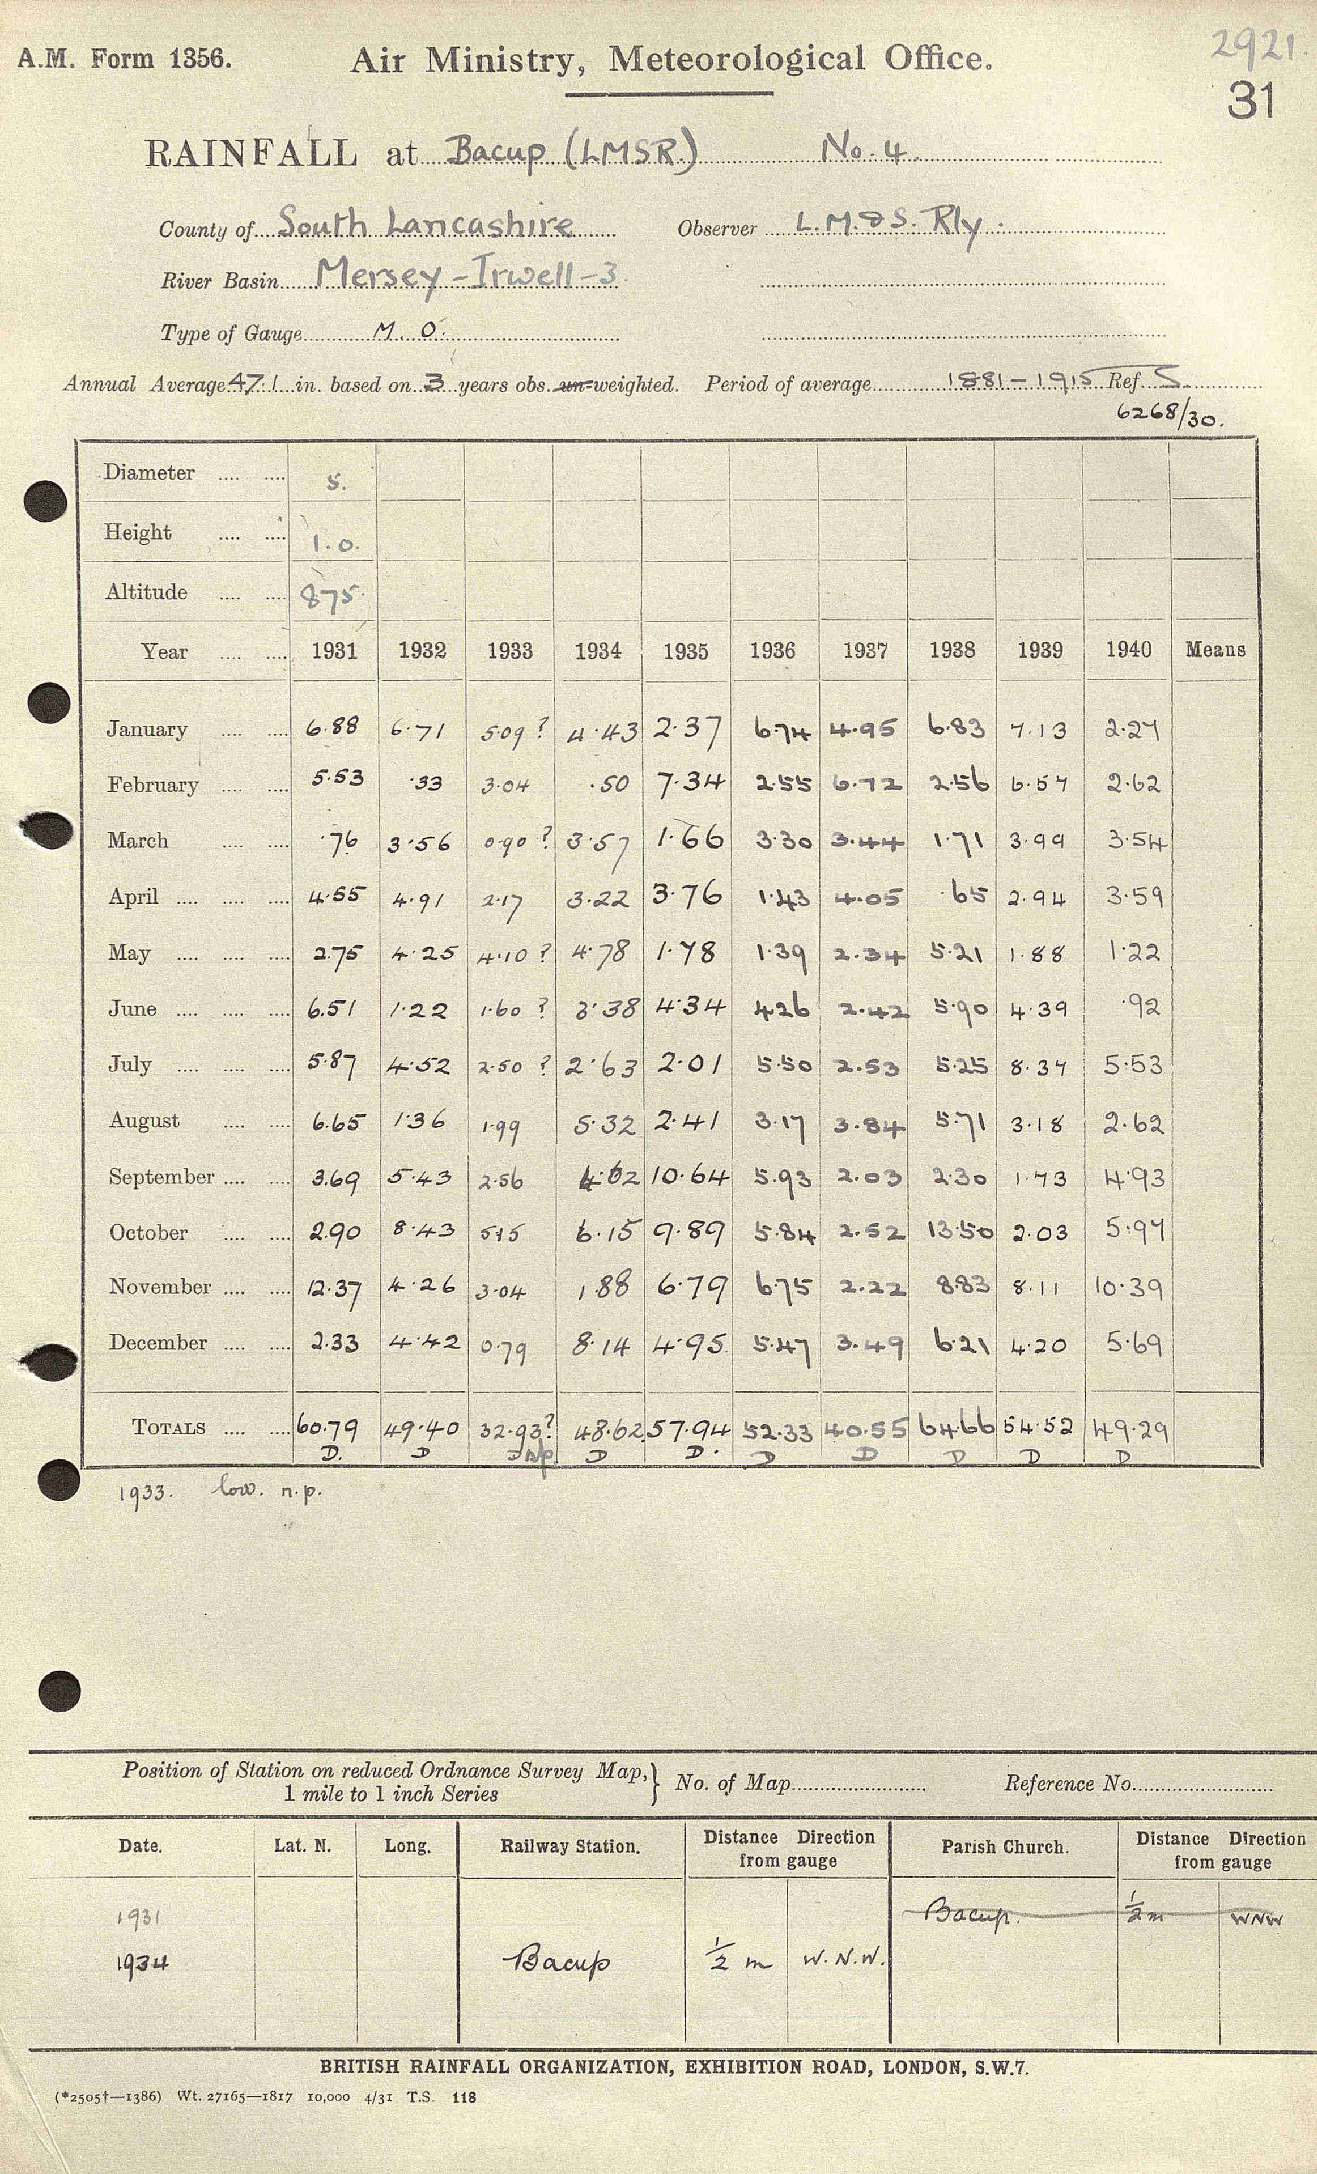 A.M. Form 1356. Air Ministry, Meteorological Office. 2921.
31
RAINFALL at Bacup (LMSR.) No. 4.
County of South Lancashire Observer L.M.&S. Rly.
River Basin Mersey-Irwell-3
Type of Gauge M.O.
Annual Average 47.1 in. based on 3 years obs. un-weighted. Period of average 1881-1915 Ref. S.
6268/30.
Diameter .... .... 5.
Height .... .... 1.0.
Altitude .... .... 875
Year .... .... 1931 1932 1933 1934 1935 1936 1937 1938 1939 1940 Means
January .... .... 6.88 6.71 5.09? 4.43 2.37 6.74 4.95 6.83 7.13 2.27
February .... .... 5.53 .33 3.04 .50 7.34 2.55 6.72 2.56 6.57 2.62
March .... .... .76 3.56 0.90? 3.57 1.66 3.30 3.44 1.71 3.99 3.54
April .... .... .... 4.55 4.91 2.17 3.22 3.76 1.43 4.05 .65 2.94 3.59
May .... .... .... 2.75 4.25 4.10? 4.78 1.78 1.39 2.34 5.21 1.88 1.22
June .... .... .... 6.51 1.22 1.60? 3.38 4.34 4.26 2.42 5.90 4.39 .92
July .... .... .... 5.87 4.52 2.50? 2.63 2.01 5.50 2.53 5.25 8.37 5.53
August .... .... 6.65 1.36 1.99 5.32 2.41 3.17 3.84 5.71 3.18 2.62
September .... .... 3.69 5.43 2.56 4.62 10.64 5.93 2.03 2.30 1.73 4.93
October .... .... 2.90 8.43 5.15 6.15 9.89 5.84 2.52 13.50 2.03 5.97
November .... .... 12.37 4.26 3.04 1.88 6.79 6.75 2.22 8.83 8.11 10.39
December .... .... 2.33 4.42 0.79 8.14 4.95 5.47 3.49 6.21 4.20 5.69
TOTALS .... .... 60.79 49.40 32.93? 48.62 57.94 52.33 40.55 64.66 54.52 49.29
D. D D D D. D D D D D
1933. low. n.p.
Position of Station on reduced Ordnance Survey Map, } No. of Map Reference No.
1 mile to 1 inch Series
Date. Lat. N. Long. Railway Station. Distance Direction Parish Church. Distance Direction
from gauge from gauge
1931 Bacup. ½ m WNW
1934 Bacup ½ m W.N.W.
BRITISH RAINFALL ORGANIZATION, EXHIBITION ROAD, LONDON, S.W.7.
(*2505†—1386) Wt. 27165—1817 10,000 4/31 T.S. 118